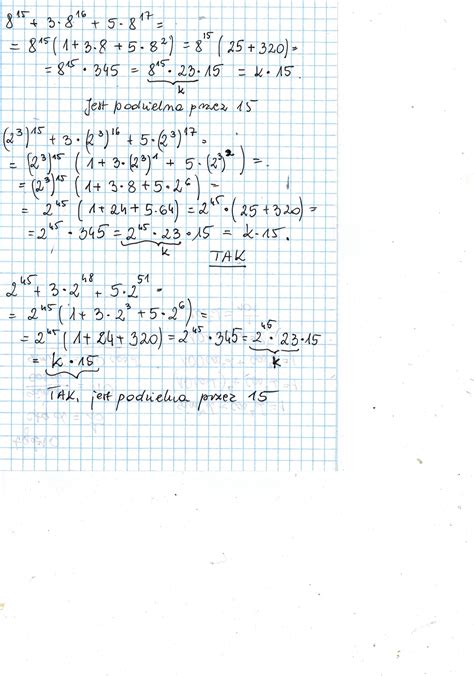 8¹⁵ + 3·8¹⁶ + 5·8¹⁷ =
= 8¹⁵(1+3·8+5·8²) = 8¹⁵(25+320) =
= 8¹⁵·345 = 8¹⁵·23·15 = k·15.
k
jest podzielna przez 15
(2³)¹⁵ + 3·(2³)¹⁶ + 5·(2³)¹⁷ =
= (2³)¹⁵ (1+3·(2³)¹ + 5·(2³)²) =
= (2³)¹⁵ (1+3·8+5·2⁶) =
= 2⁴⁵ (1+24+5·64) = 2⁴⁵·(25+320) =
= 2⁴⁵·345 = 2⁴⁵·23·15 = k·15.
k
TAK
2⁴⁵ + 3·2⁴⁸ + 5·2⁵¹ =
= 2⁴⁵(1+3·2³+5·2⁶) =
= 2⁴⁵(1+24+320) = 2⁴⁵·345 = 2⁴⁵·23·15
= k·15 k
TAK, jest podzielna przez 15